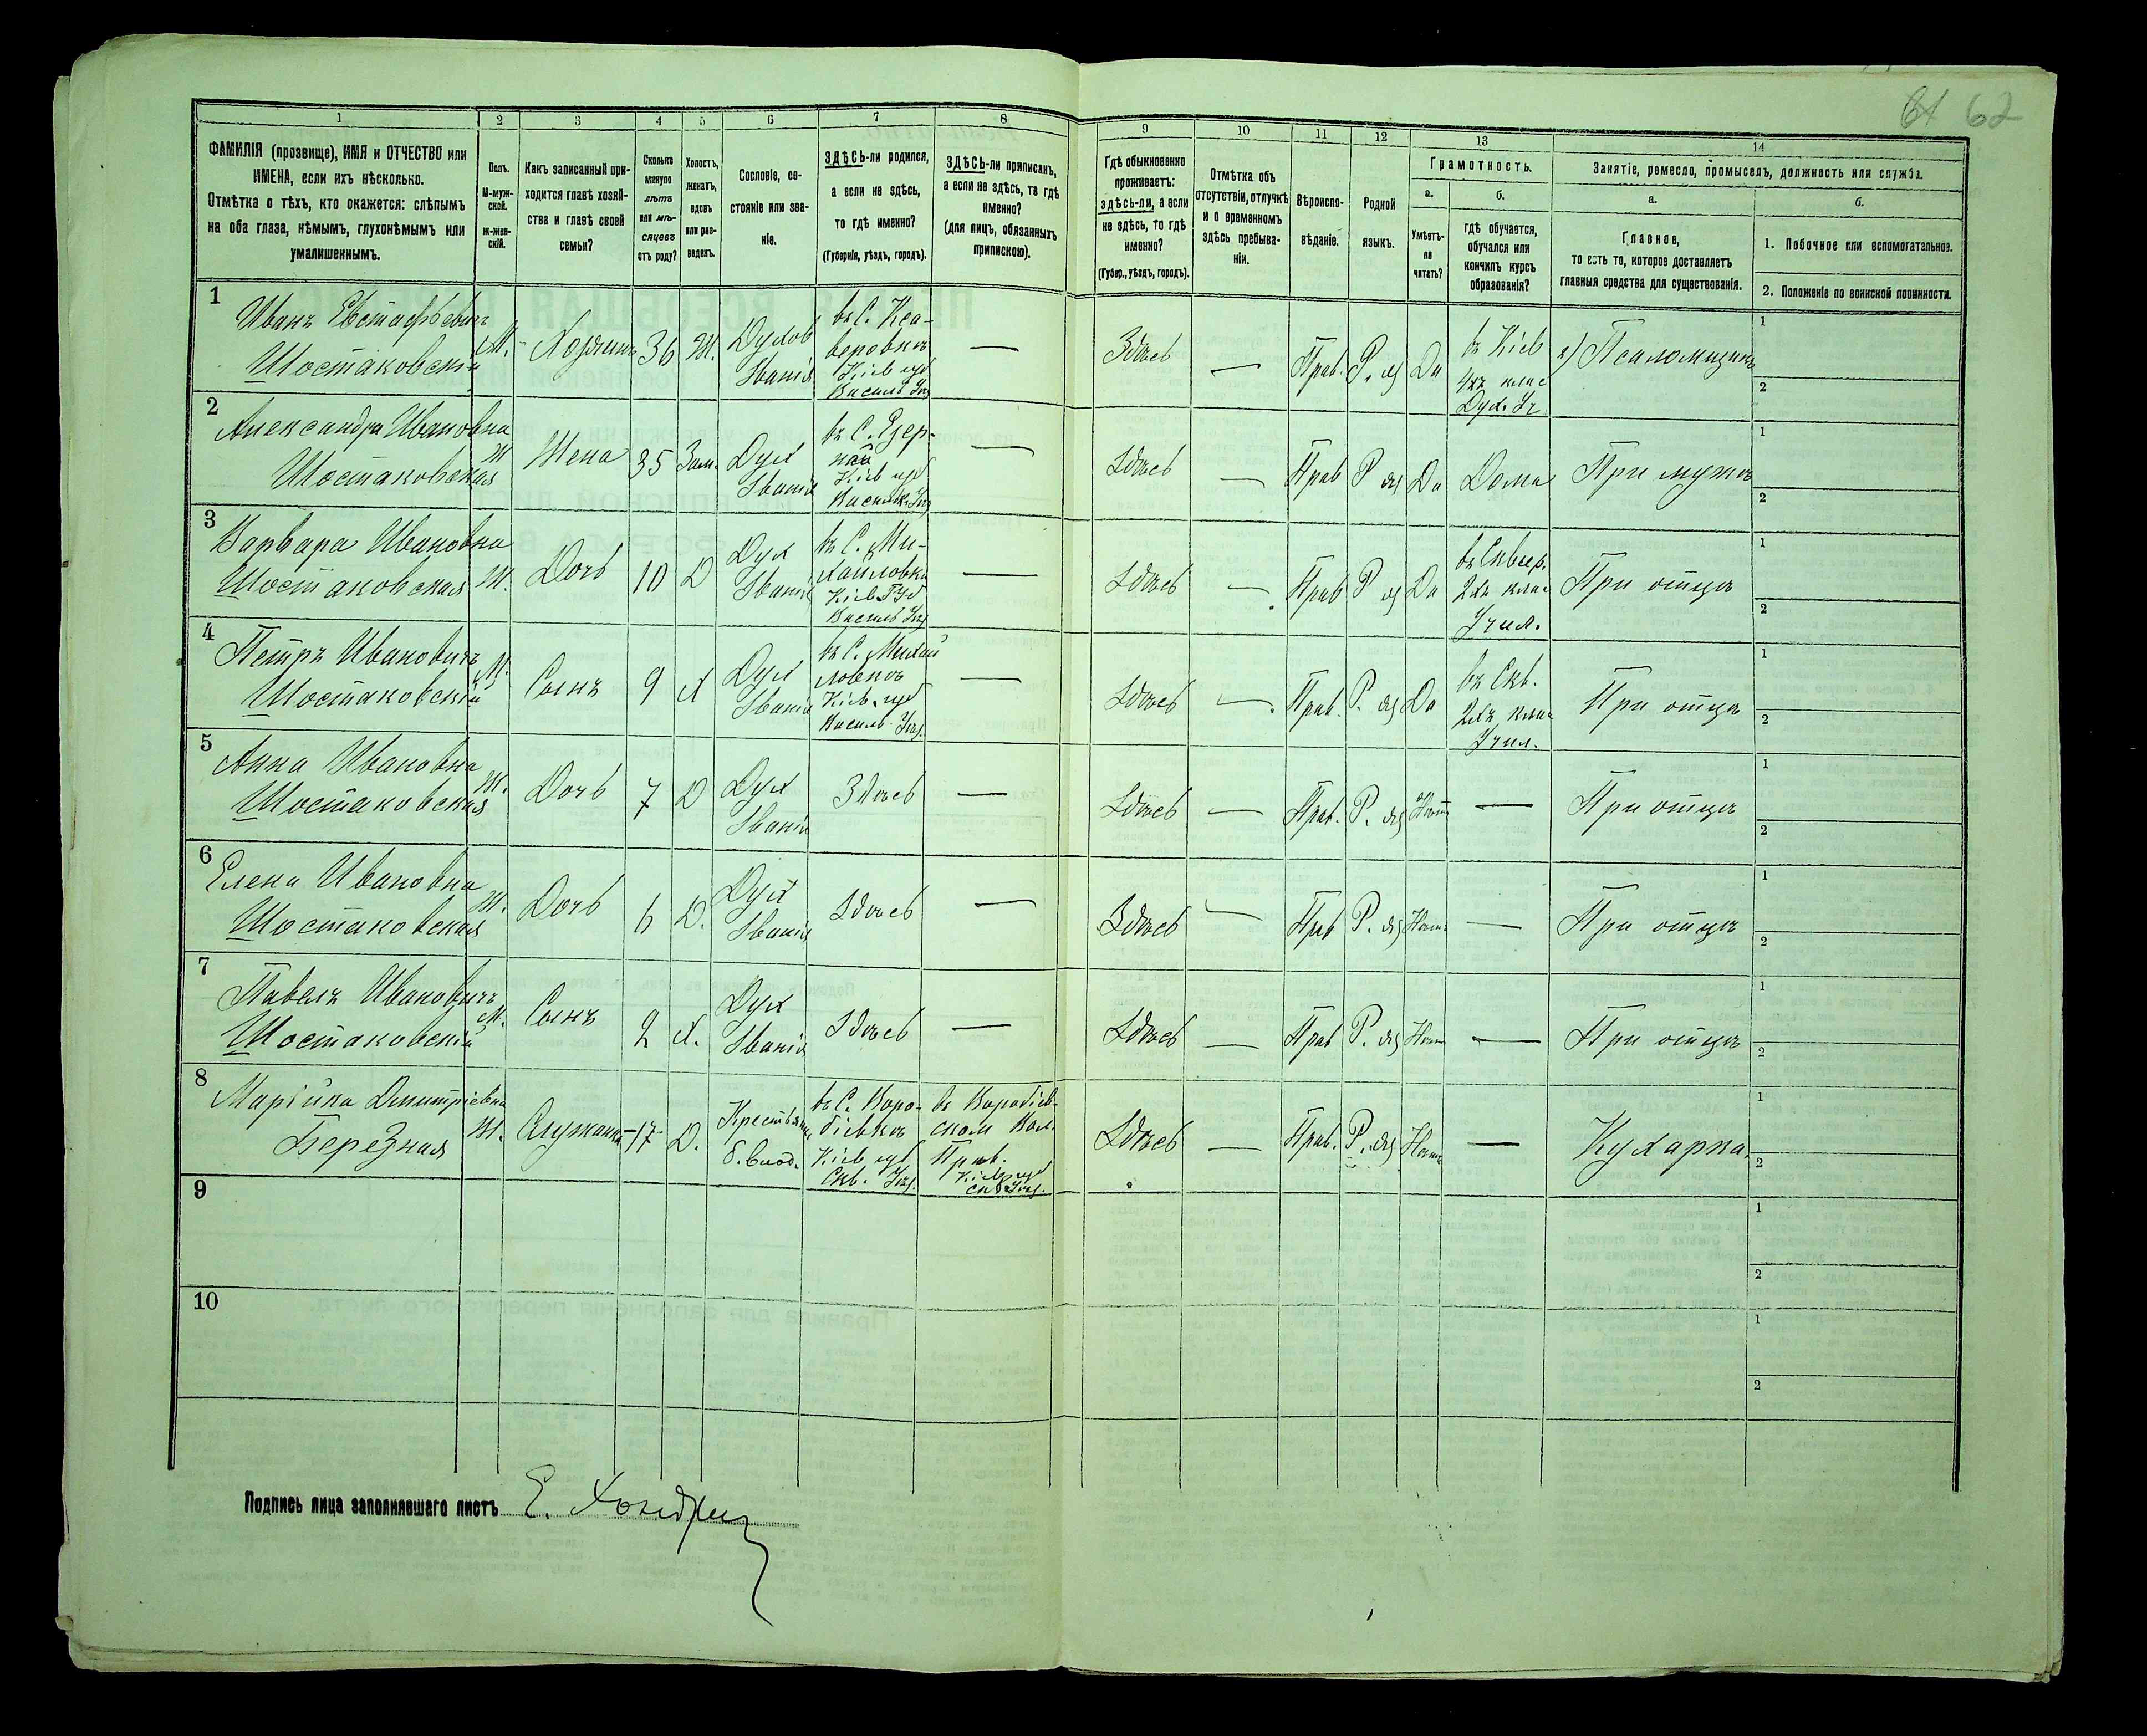 61 62
1 2 3 4 5 6 7 8 9 10 11 12 13 14
ФАМИЛІЯ (прозвище), ИМЯ и ОТЧЕСТВО или
ИМЕНА, если ихъ нѣсколько.
Отмѣтка о тѣхъ, кто окажется: слѣпымъ
на оба глаза, нѣмымъ, глухонѣмымъ или
умалишеннымъ.
Полъ.
М-муж-
ской.
Ж-жен-
скій.
Какъ записанный при-
ходится главѣ хозяй-
ства и главѣ своей
семьи?
Сколько
минуло
лѣтъ
или мѣ-
сяцевъ
отъ роду?
Холостъ,
женатъ,
вдовъ
или раз-
веденъ.
Сословіе, со-
стояніе или зва-
ніе.
ЗДѢСЬ-ли родился,
а если не здѣсь,
то гдѣ именно?
(Губернія, уѣздъ, городъ).
ЗДѢСЬ-ли приписанъ,
а если не здѣсь, то гдѣ
именно?
(для лицъ, обязанныхъ
припискою).
Гдѣ обыкновенно
проживаетъ:
здѣсь-ли, а если
не здѣсь, то гдѣ
именно?
(Губер., уѣздъ, городъ).
Отмѣтка объ
отсутствіи, отлучкѣ
и о временномъ
здѣсь пребыва-
ніи.
Вѣроиспо-
вѣданіе.
Родной
языкъ.
Грамотность.
а.
Умѣетъ-
ли
читать?
б.
гдѣ обучается,
обучался или
кончилъ курсъ
образованія?
Занятіе, ремесло, промыселъ, должность или служба.
а.
Главное,
то есть то, которое доставляетъ
главныя средства для существованія.
б.
1. Побочное или вспомогательное.
2. Положеніе по воинской повинности.
1
Иванъ Евстафьевичъ
Шостаковскій
М. Хозяинъ 36 Ж.
Духов
Званія
въ С. Кса-
веровкѣ
Кіев губ
Василь Уѣз
—
Здѣсь — Прав. Р. яз Да
въ Кіев
4хъ клас
Дух. Уч
а) Псаломщикъ
1
2
2
Александра Ивановна
Шостаковская
Ж Жена 35 Зам.
Дух
Званія
въ С. Езер-
ной
Кіев губ
Васильк. Уѣз
—
Здѣсь — Прав Р яз Да Дома При мужѣ
1
2
3
Варвара Ивановна
Шостаковская
Ж. Дочь 10 Д
Дух
Званія
въ С. Ми-
хайловкѣ
Кіев Губ
Василь Уѣз
—
Здѣсь — Прав Р яз Да
въ Сквир.
2хъ клас
Учил.
При отцѣ
1
2
4
Петръ Ивановичъ
Шостаковскій
М. Сынъ 9 Х
Дух
Званія
въ С. Михай
ловкѣ
Кіев. губ
Василь. Уѣз.
—
Здѣсь — Прав. Р. яз Да
въ Скв.
2хъ клас
Учил.
При отцѣ
1
2
5
Анна Ивановна
Шостаковская
Ж. Дочь 7 Д
Дух
Званія
Здѣсь —
Здѣсь — Прав. Р. яз Нѣтъ — При отцѣ
1
2
6
Елена Ивановна
Шостаковская
Ж. Дочь 6 Д.
Дух
Званія
Здѣсь —
Здѣсь — Прав Р. яз Нѣтъ — При отцѣ
1
2
7
Павелъ Ивановичъ
Шостаковскій
М. Сынъ 2 Х.
Дух
Званія
Здѣсь —
Здѣсь — Прав Р. яз Нѣтъ — При отцѣ
1
2
8
Марійка Дмитріевна
Березная
Ж. Служанка 17 Д.
Крестьянка
б. влад.
въ С. Воро-
біевкѣ
Кіев губ
Скв. Уѣз.
въ Воробіев-
ском Вол.
Прав.
Кіев губ
Скв. Уѣз.
Здѣсь — Прав. Р. яз Нѣтъ — Кухарка
1
2
9
1
2
10
1
2
Подпись лица заполнявшаго листъ Е.